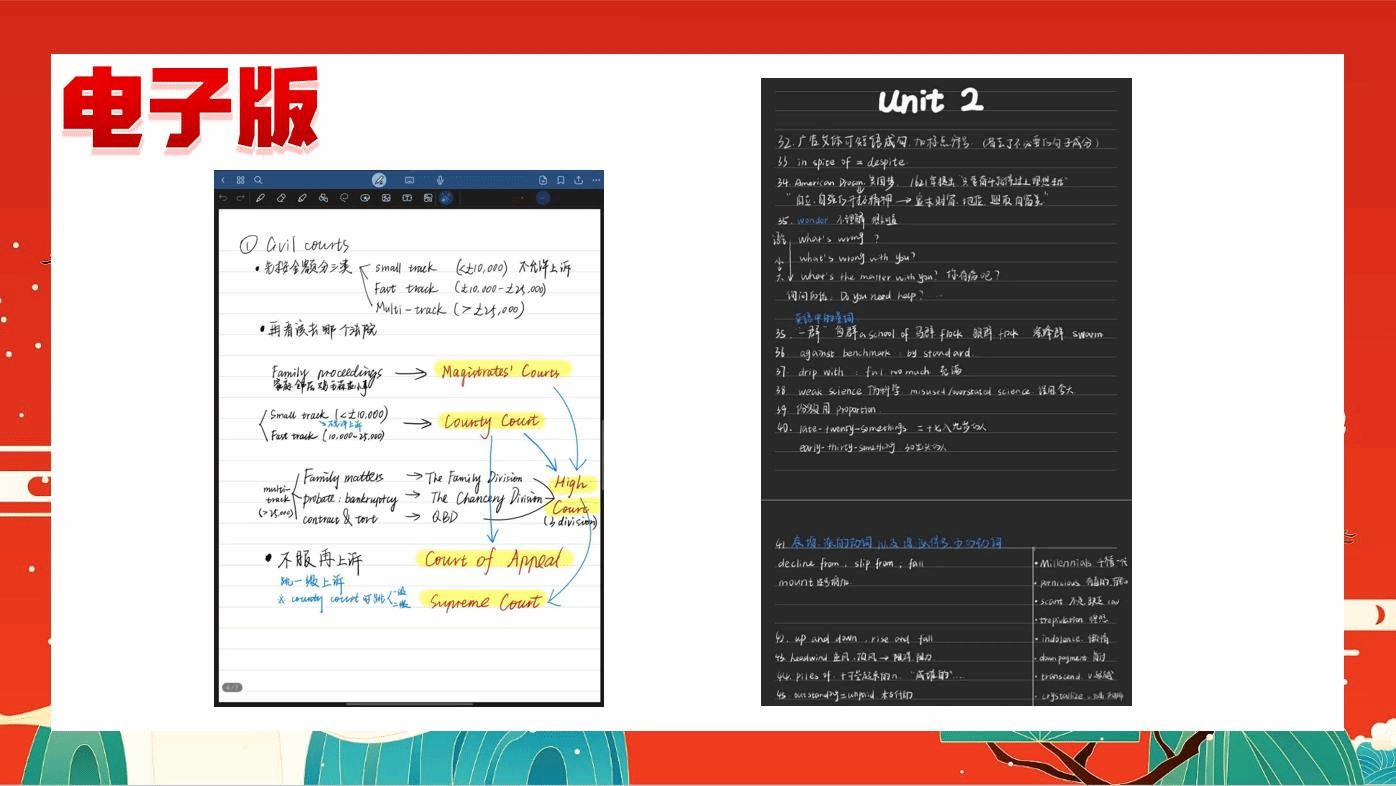 电子版
① Civil courts
• 先按金额分三类
small track (<£10,000) 不允许上诉
Fast track (£10,000-£25,000)
Multi-track (>£25,000)
• 再看该去哪个法院
Family proceedings → Magistrates' Courts
Small track (<£10,000)
不允许上诉
Fast track (10,000~25,000)
→ County Court
multi-track (>25,000)
Family matters → The Family Division
probate: bankruptcy → The Chancery Division
contract & tort → QBD
High Court
(3 division)
• 不服再上诉
跳一级上诉
Court of Appeal
county court 可跳 一级 二级
Supreme Court
Unit 2
33. in spite of = despite.
34. American Dream. 美国梦. 1621年提出
35. wonder
what's wrong ?
what's wrong with you?
what's the matter with you? 你有病吧?
Do you need help?
英语中的量词
35. "一群" 鱼群 a school of 鸟群 flock 蜜蜂群 swarm
36. against benchmark : by standard.
37. drip with :
38. weak science 伪科学. misused/overstated science.
39. 份数用 proportion
40. late-twenty-somethings 二十七八九岁的人
early-thirty-something 30出头的人
41.
decline from, slip from, fall
mount
42. up and down, rise and fall
43. headwind 逆风, 顶风 → 阻碍, 阻力
44. piles of
45. outstanding = unpaid 未支付的
• Millennials 千禧一代
• pernicious
• scant
• trepidation
• indolence. 懒惰
• down payment 首付
• transcend. v 超越
• crystallize